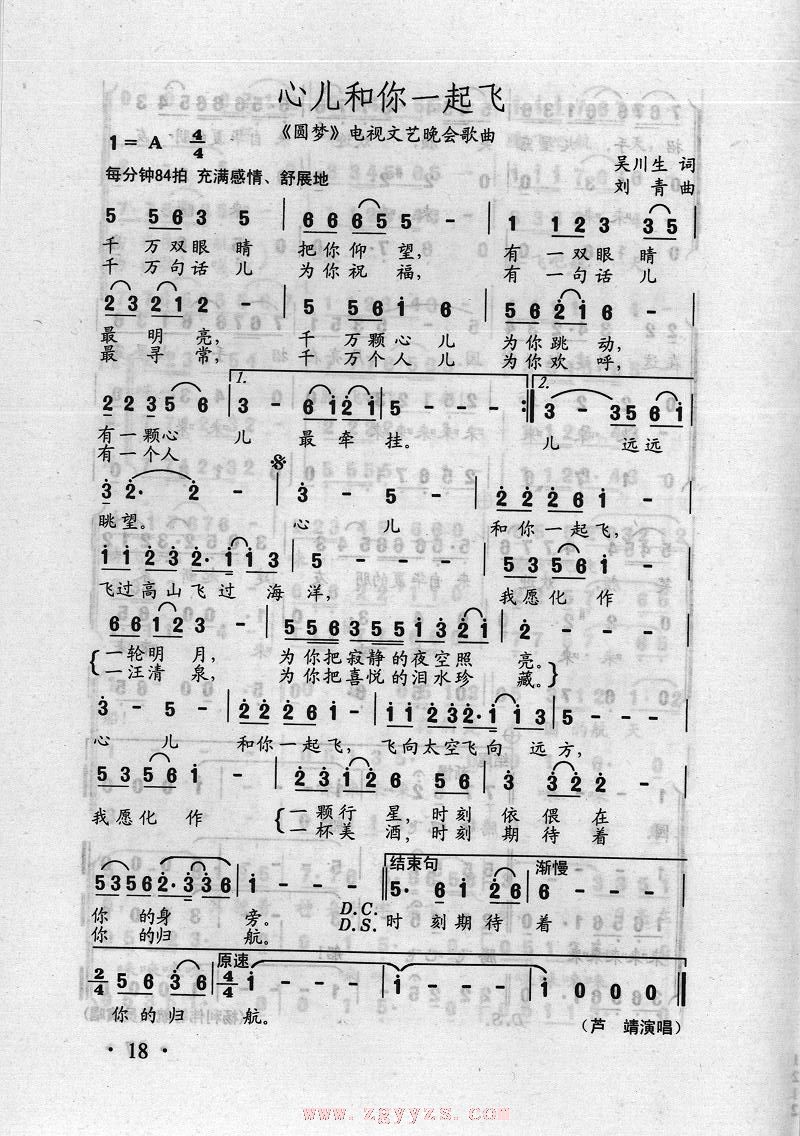 心儿和你一起飞
《圆梦》电视文艺晚会歌曲
1=A 4/4
吴川生 词
每分钟84拍 充满感情、舒展地
刘 青 曲
5 5 6 3 5 | 6 6 6 5 5 - - | 1 1 2 3 3 5 |
千 万双眼睛 把你仰望, 有一双眼睛
千 万句话儿 为你祝福, 有一句话儿
2 3 2 1 2 - - | 5 5 6 i 6 | 5 6 2 i 6 - - |
最 明亮, 千 万颗心儿 为你跳 动,
最 寻常, 千 万个人儿 为你欢 呼,
1. 2.
2 2 3 5 6 | 3 - 6 i 2 i | 5 - - - :| 3 - 3 5 6 i |
有一颗心 儿 最 牵 挂。 儿 远远
有一个人
3 2· 2 - | 3 - 5 - | 2 2 2 6 i - |
眺望。 心 儿 和你一起飞,
i i 2 3 2· i i 3 | 5 - - - | 5 3 5 6 i - |
飞过高山飞过 海 洋, 我愿化 作
6 6 1 2 3 - | 5 5 5 6 3 5 5 i 3 2 i | 2 - - - |
一轮明 月, 为你把寂静的夜空照 亮。
一汪清 泉, 为你把喜悦的泪水珍 藏。
3 - 5 - | 2 2 2 6 i - | i i 2 3 2· i i 3 | 5 - - - |
心 儿 和你一起飞, 飞向太空飞向 远方,
5 3 5 6 i - | 2 3 i 2 6 5 6 | 3 3 2 i 2 |
我愿化 作 一颗行 星, 时刻 依偎 在
一杯美 酒, 时刻 期待 着
结束句 渐慢
5 3 5 6 2· 3 3 6 | i - - - | 5· 6 i 2 6 | 6 - - - |
你 的身 旁。 D.C. 时 刻期待 着
你 的归 航。 D.S.
原速
2/4 5 6 3 6 | 4/4 i - - - | i - - - | i 0 0 0 |
你 的归 航。
(芦 靖演唱)
· 18 ·
www.zgyyzs.com